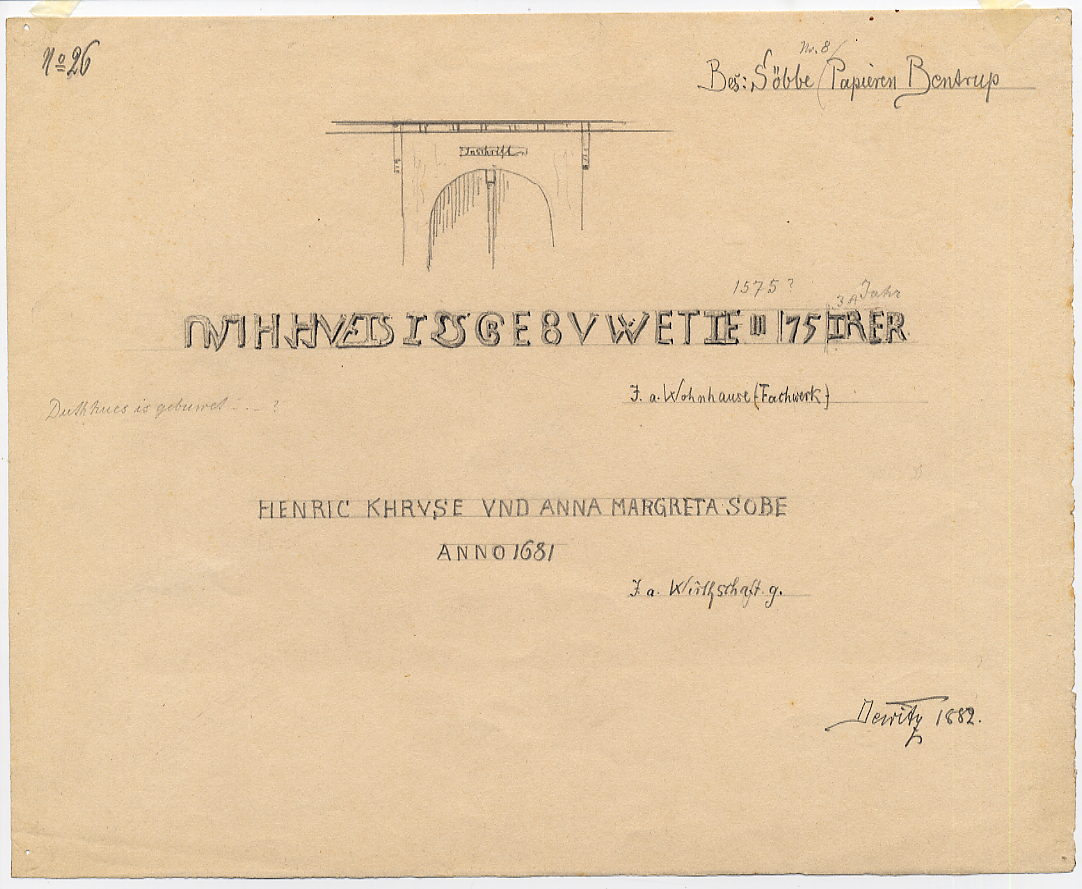 No 26
Nr. 8
Bes: Söbbe (Papieren Bentrup
Inschrift
1575?
34 Jahr
HVEIS IS GEBVWET IE III 175 IRER
J. a. Wohnhause (Fachwerk)
Duth hues is gebuwet ... ?
HENRIC KHRVSE VND ANNA MARGRETA SOBE
ANNO 1681
J. a. Wirthschaft. g.
Dewitz 1882.